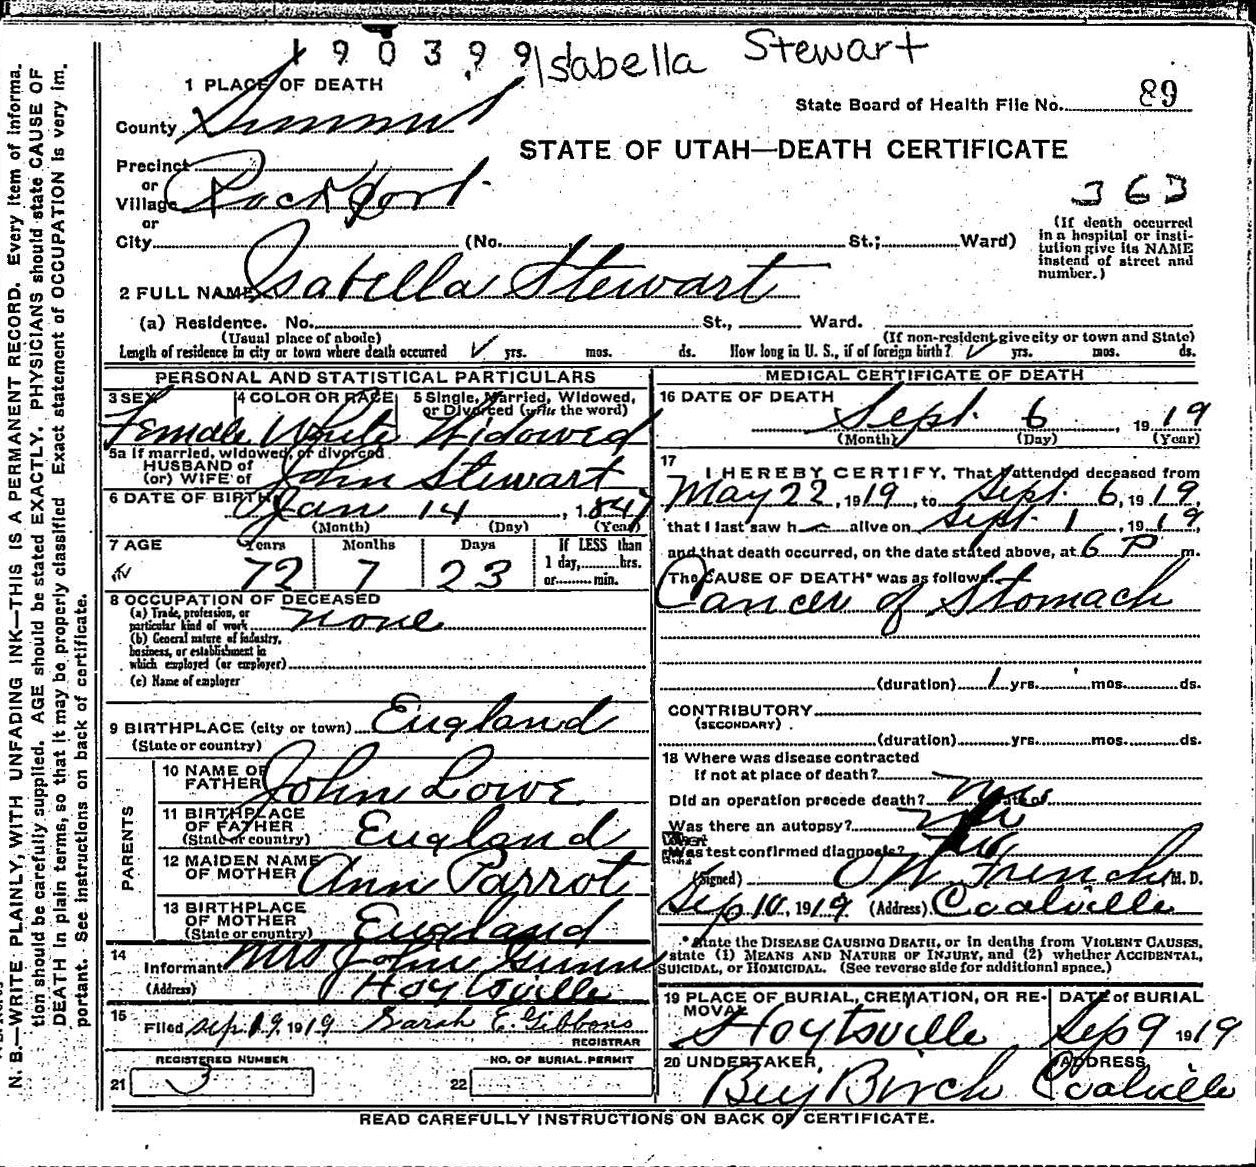 190399 Isabella Stewart
1 PLACE OF DEATH
State Board of Health File No. 89
County Summit
STATE OF UTAH—DEATH CERTIFICATE
Precinct
or
Village Rockport
363
(If death occurred in a hospital or insti-
tution give its NAME
instead of street and
number.)
or
City (No. St.; Ward)
2 FULL NAME Isabella Stewart
(a) Residence. No. St., Ward.
(Usual place of abode) (If non-resident give city or town and State)
Length of residence in city or town where death occurred yrs. mos. ds. How long in U. S., if of foreign birth? yrs. mos. ds.
PERSONAL AND STATISTICAL PARTICULARS
3 SEX 4 COLOR OR RACE 5 Single, Married, Widowed,
or Divorced (write the word)
Female White Widowed
5a If married, widowed, or divorced
HUSBAND of
(or) WIFE of John Stewart
6 DATE OF BIRTH Jan 14, 1847
(Month) (Day) (Year)
7 AGE Years Months Days If LESS than
1 day, hrs.
or min.
72 7 23
8 OCCUPATION OF DECEASED
(a) Trade, profession, or
particular kind of work none
(b) General nature of industry,
business, or establishment in
which employed (or employer)
(c) Name of employer
9 BIRTHPLACE (city or town) England
(State or country)
PARENTS
10 NAME OF
FATHER John Lowe
11 BIRTHPLACE
OF FATHER England
(State or country)
12 MAIDEN NAME
OF MOTHER Ann Parrot
13 BIRTHPLACE
OF MOTHER England
(State or country)
14
Informant Mrs John Gunn
(Address) Hoytsville
15
Filed Sep 19, 1919 Sarah E. Gibbons
REGISTRAR
REGISTERED NUMBER NO. OF BURIAL PERMIT
21 3 22
MEDICAL CERTIFICATE OF DEATH
16 DATE OF DEATH
Sept. 6, 1919
(Month) (Day) (Year)
17
I HEREBY CERTIFY, That I attended deceased from
May 22, 1919, to Sept. 6, 1919,
that I last saw h alive on Sept. 1, 1919
and that death occurred, on the date stated above, at 6 P m.
The CAUSE OF DEATH* was as follows:
Cancer of Stomach
(duration) 1 yrs. mos. ds.
CONTRIBUTORY
(SECONDARY)
(duration) yrs. mos. ds.
18 Where was disease contracted
if not at place of death?
Did an operation precede death? no Date of
Was there an autopsy? no
What test confirmed diagnosis?
(Signed) French M. D.
Sep 10, 1919 (Address) Coalville
*State the DISEASE CAUSING DEATH, or in deaths from VIOLENT CAUSES,
state (1) MEANS AND NATURE OF INJURY, and (2) whether ACCIDENTAL,
SUICIDAL, or HOMICIDAL. (See reverse side for additional space.)
19 PLACE OF BURIAL, CREMATION, OR RE-
MOVAL DATE of BURIAL
Hoytsville Sep 9 1919
20 UNDERTAKER, ADDRESS
Birch Coalville
READ CAREFULLY INSTRUCTIONS ON BACK OF CERTIFICATE.
N. B.—WRITE PLAINLY, WITH UNFADING INK—THIS IS A PERMANENT RECORD. Every item of informa-
tion should be carefully supplied. AGE should be stated EXACTLY. PHYSICIANS should state CAUSE OF
DEATH in plain terms, so that it may be properly classified Exact statement of OCCUPATION is very im-
portant. See instructions on back of certificate.